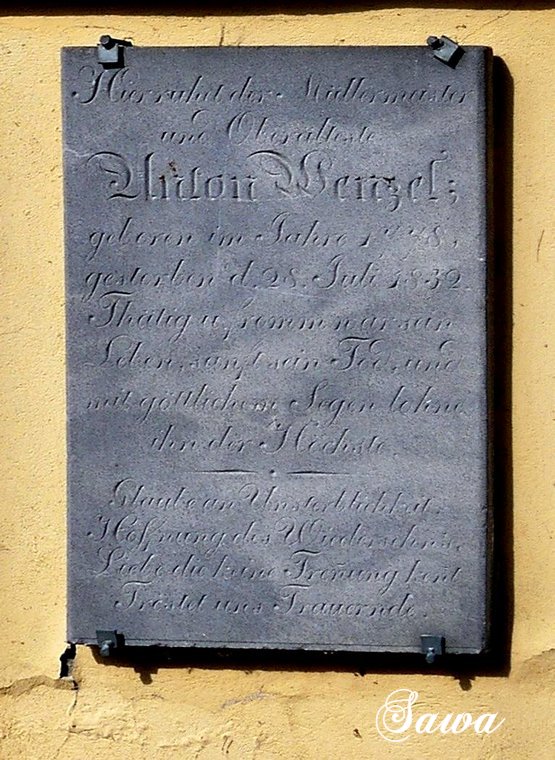 Hier ruht der Müllermeister
und Oberälteste
Anton Wenzel;
geboren im Jahre 1778,
gestorben d. 28. Juli 1832.
Thätig u, fromm war sein
Leben, sanft sein Tod, und
mit göttlichem Segen lohne
ihn der Höchste.
Glaube an Unsterblichkeit,
Hoffnung des Wiedersehn's,
Liebe die keine Treñung keñt
Tröstet uns Trauernde.
Sawa